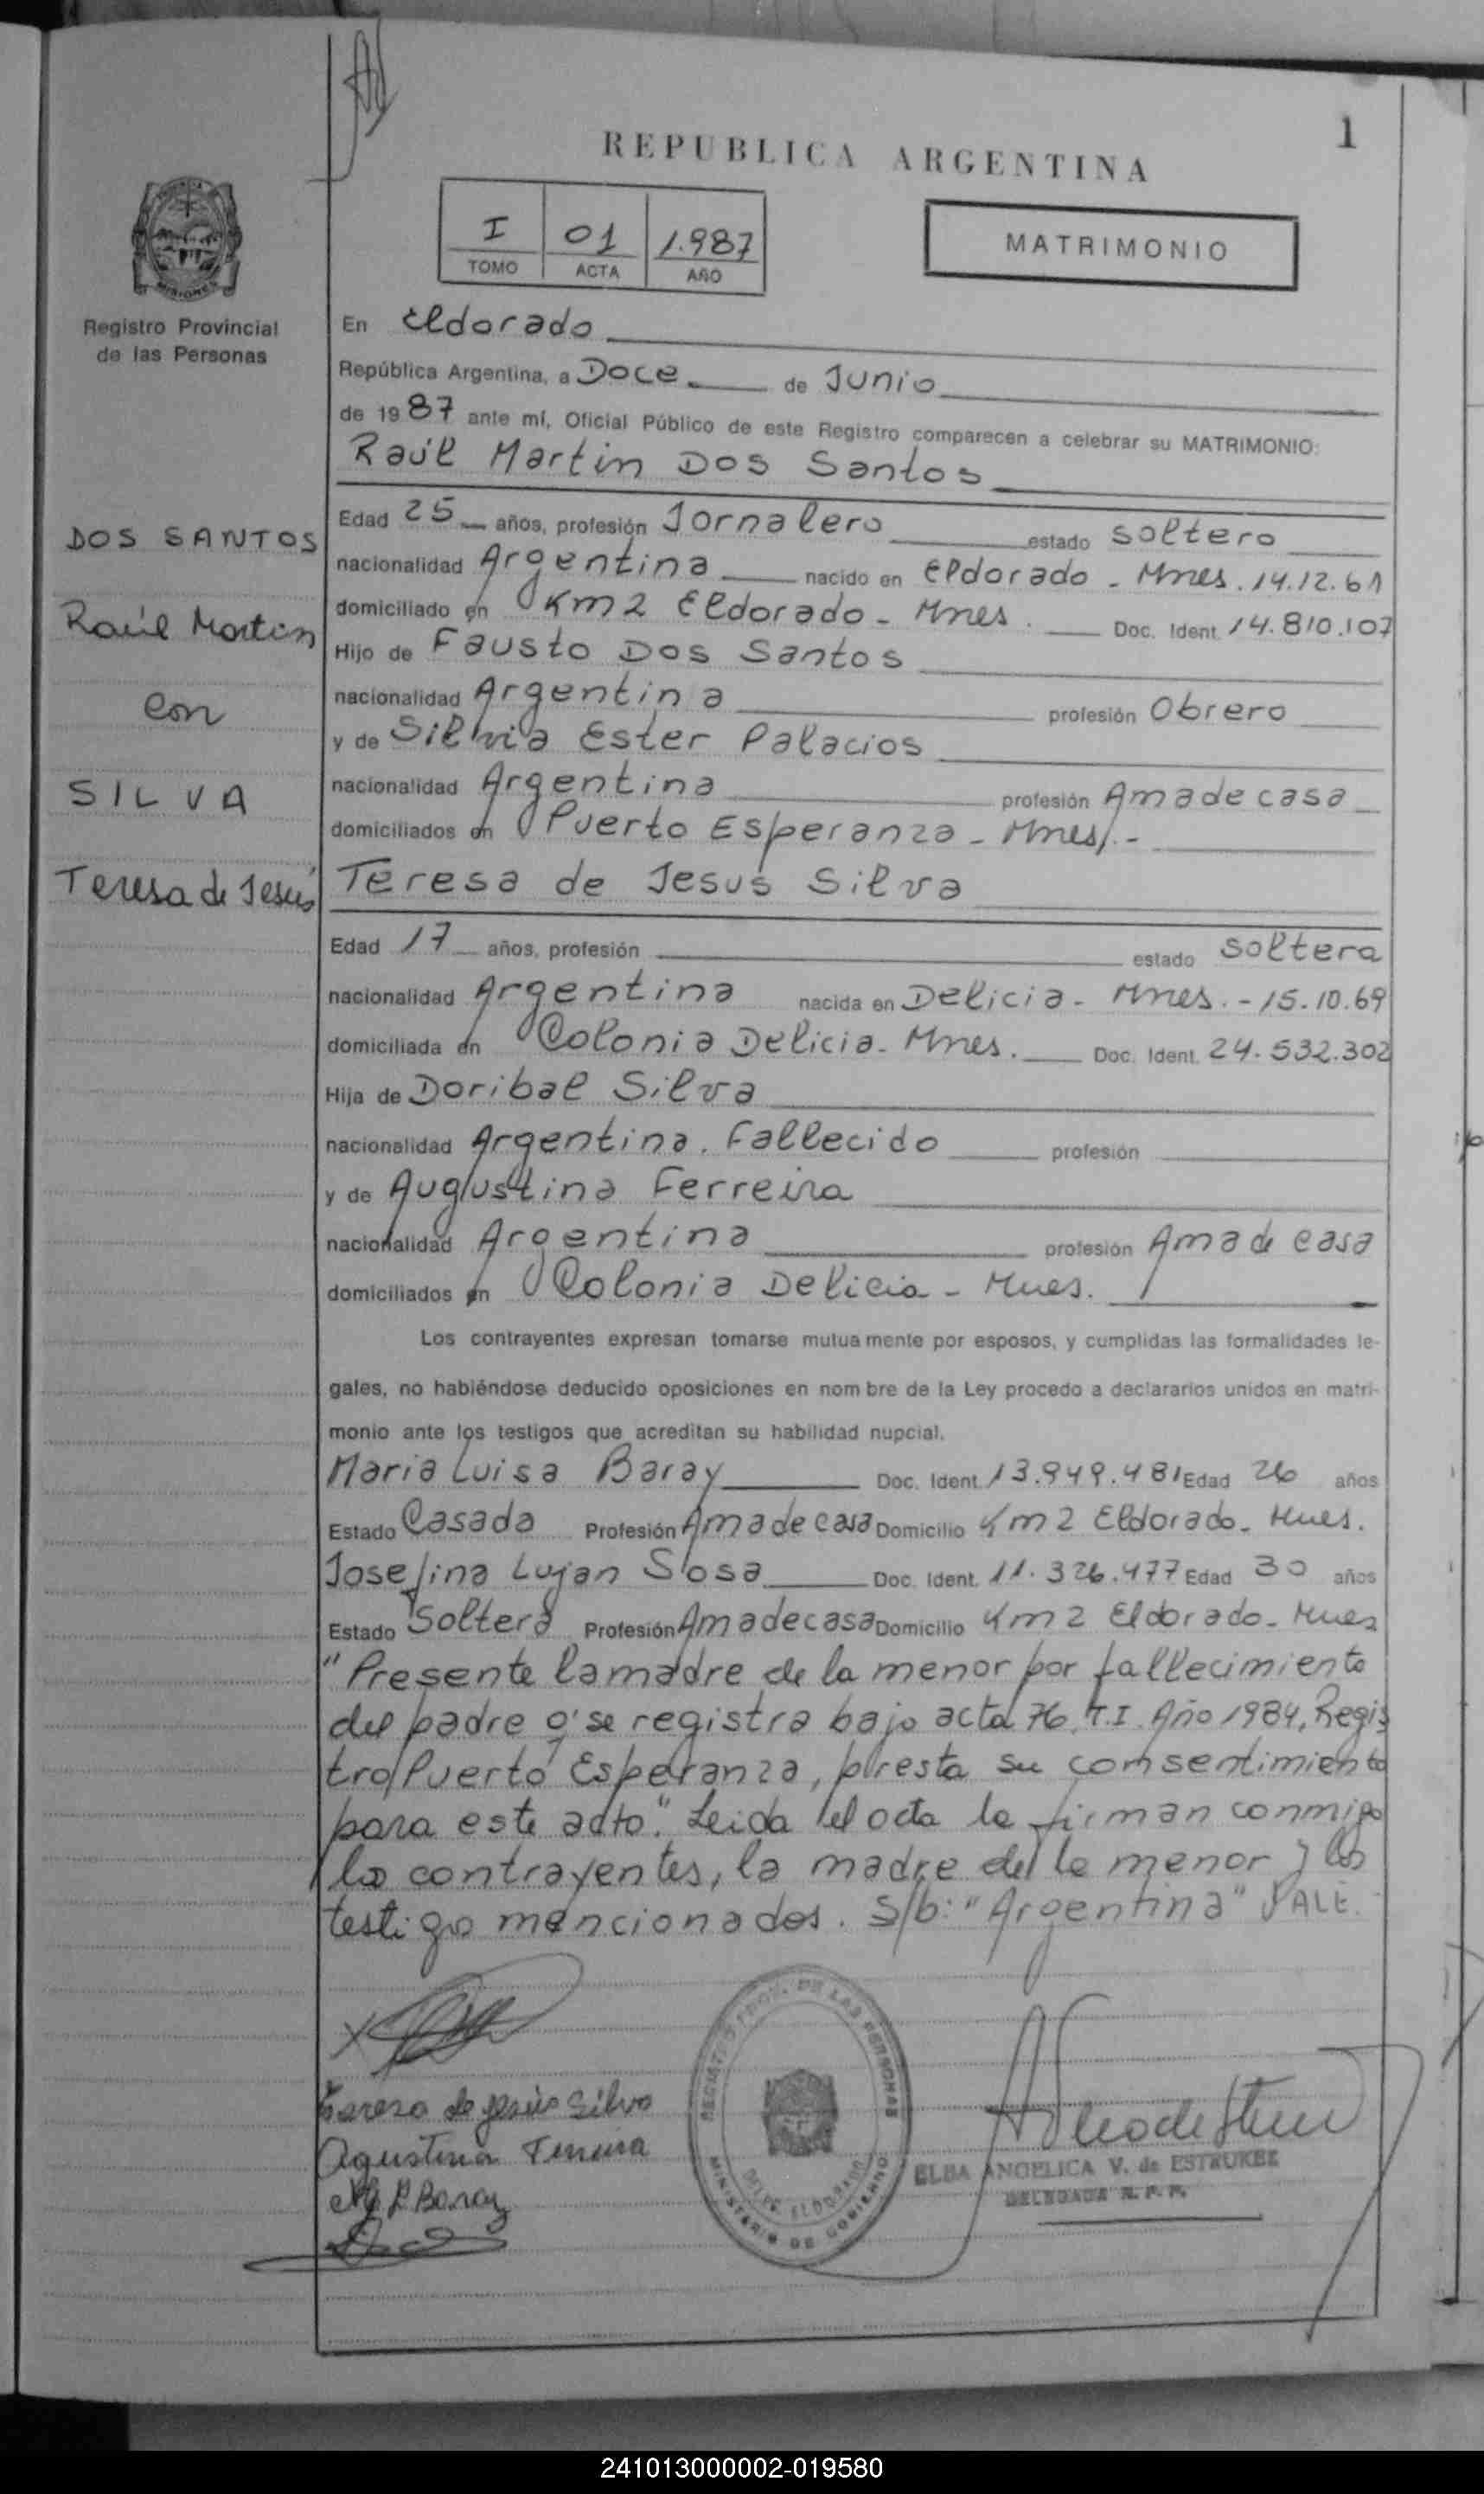 1
REPUBLICA ARGENTINA
I 01 1.987
TOMO ACTA AÑO
MATRIMONIO
MISIONES
Registro Provincial
de las Personas
En Eldorado
República Argentina, a Doce de Junio
de 1987 ante mí, Oficial Público de este Registro comparecen a celebrar su MATRIMONIO:
Raúl Martin Dos Santos
DOS SANTOS
Raúl Martin
con
SILVA
Teresa de Jesús
Edad 25 años, profesión Jornalero estado soltero
nacionalidad Argentina nacido en Eldorado - Mnes. 14.12.61
domiciliado en Km 2 Eldorado - Mnes. Doc. Ident. 14.810.107
Hijo de Fausto Dos Santos
nacionalidad Argentina profesión Obrero
y de Silvia Ester Palacios
nacionalidad Argentina profesión Ama de casa
domiciliados en Puerto Esperanza - Mnes. -
Teresa de Jesús Silva
Edad 17 años, profesión estado soltera
nacionalidad Argentina nacida en Delicia - Mnes. - 15.10.69
domiciliada en Colonia Delicia - Mnes. Doc. Ident. 24.532.302
Hija de Doribal Silva
nacionalidad Argentina. Fallecido profesión
y de Augustina Ferreira
nacionalidad Argentina profesión Ama de casa
domiciliados en Colonia Delicia - Mnes.
Los contrayentes expresan tomarse mutuamente por esposos, y cumplidas las formalidades le-
gales, no habiéndose deducido oposiciones en nombre de la Ley procedo a declararlos unidos en matri-
monio ante los testigos que acreditan su habilidad nupcial.
Maria Luisa Baray Doc. Ident. 13.949.481 Edad 26 años
Estado Casada Profesión Ama de casa Domicilio Km 2 Eldorado - Mnes.
Josefina Lujan Sosa Doc. Ident. 11.326.477 Edad 30 años
Estado Soltera Profesión Ama de casa Domicilio Km 2 Eldorado - Mnes
"Presente la madre de la menor por fallecimiento
del padre q' se registra bajo acta 76, T.I. Año 1984, Regis
tro Puerto Esperanza, presta su consentimiento
para este acto." Leida el acta la firman conmigo
los contrayentes, la madre de la menor y los
testigos mencionados. S/b: "Argentina" VALE.
Teresa de Jesús Silva
Agustina Ferreira
M L Baray
REGISTRO PROV. DE LAS PERSONAS
DELEG. ELDORADO
MINISTERIO DE GOBIERNO
ELBA ANGELICA V. de ESTRUKEL
DELEGADA R. P. P.
241013000002-019580